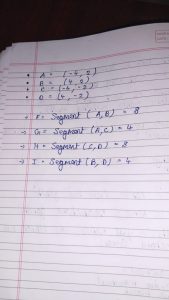 • A = (-4, 2)
• B = (4, 2)
• C = (-4, -2)
• D = (4, -2)
→ F = Segment (A, B) = 8
→ G = Segment (A, C) = 4
→ H = Segment (C, D) = 8
→ I = Segment (B, D) = 4